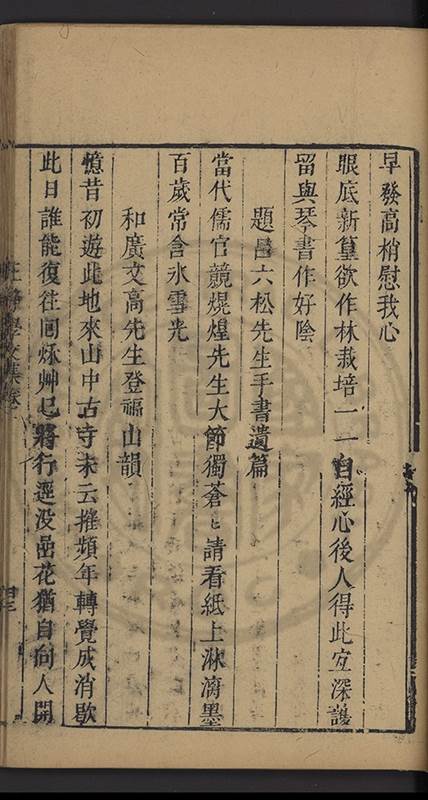 早發高梢慰我心
眼底新篁欲作林栽培一一自經心後人得此宜深護
留與琴書作好陰
題呂六松先生手書遺篇
當代儒官競焜煌先生大節獨蒼〻請看紙上淋漓墨
百歲常含氷雪光
和廣文高先生登福山韻
憶昔初遊此地來山中古寺未云摧頻年轉覺成消歇
此日誰能復往囘烁艸已將行逕没嵒花猶自向人開